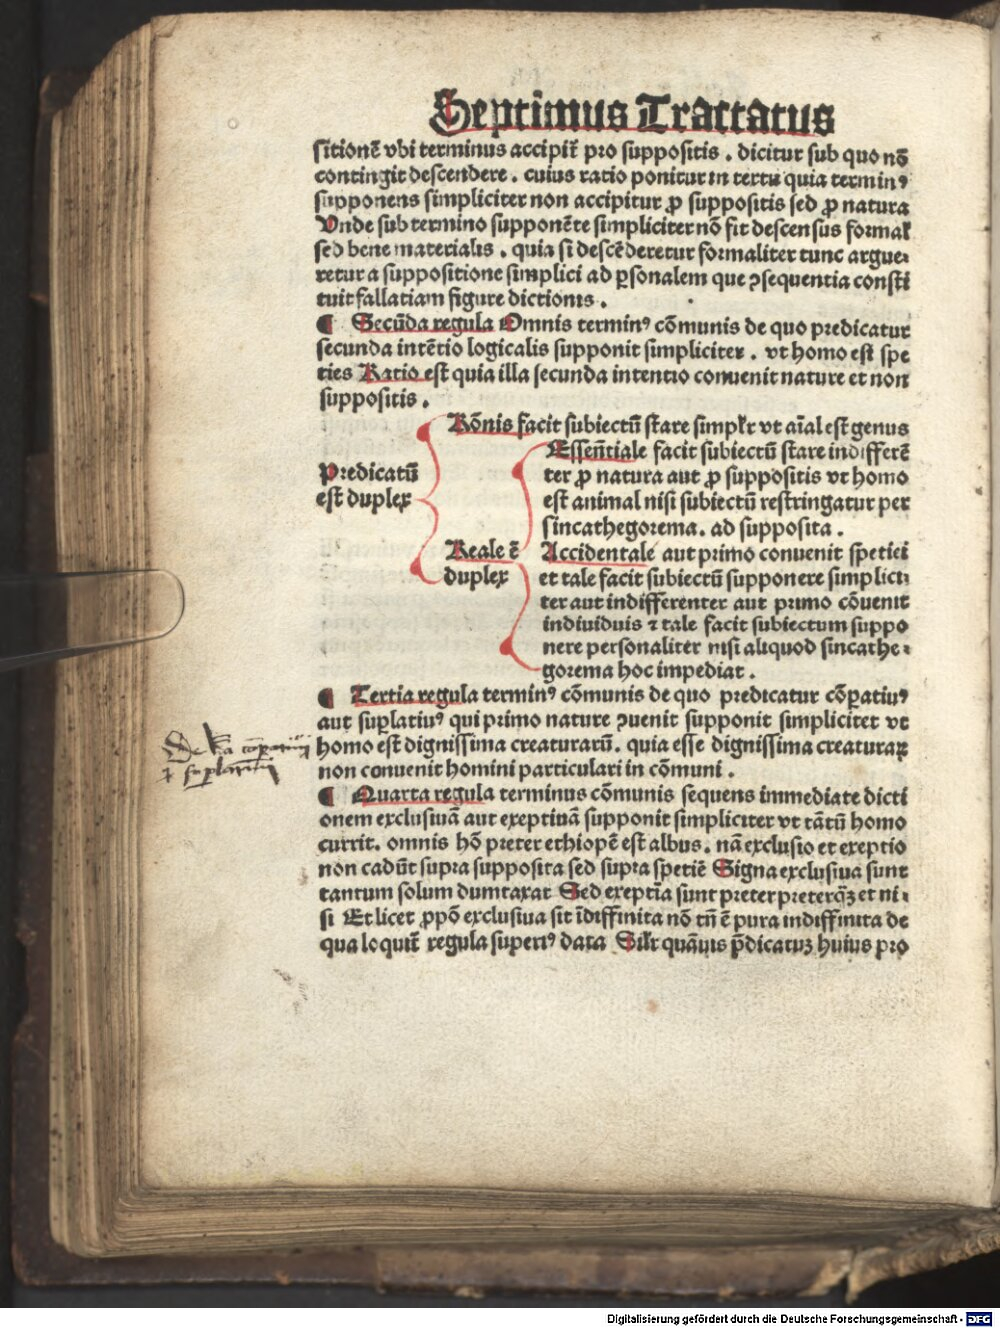 Septimus Tractatus
sitionē vbi terminus accipit̄ pro suppositis . dicitur sub quo nō
contingit descendere . cuius ratio ponitur in textu quia terminꝰ
supponens simpliciter non accipitur ꝓ suppositis sed ꝓ natura
Vnde sub termino supponēte simpliciter nō fit descensus formal
sed bene materialis . quia si descēderetur formaliter tunc argue⸗
retur a suppositione simplici ad ꝑsonalem que ꝯsequentia consti
tuit fallatiam figure dictionis .
¶ Secūda regula Omnis terminꝰ cōmunis de quo predicatur
secunda intētio logicalis supponit simpliciter . vt homo est spe
cies Ratio est quia illa secunda intentio conuenit nature et non
suppositis .
Rōnis facit subiectū stare simplr vt aīal est genus
Predicatū
est duplex
Essentiale facit subiectū stare indifferē
ter ꝓ natura aut ꝓ suppositis vt homo
est animal nisi subiectū restringatur per
sincathegorema . ad supposita .
Reale ē
duplex
Accidentale aut primo conuenit speciei
et tale facit subiectū supponere simplici⸗
ter aut indifferenter aut primo cōuenit
indiuiduis ⁊ tale facit subiectum suppo
nere personaliter nisi aliquod sincathe⸗
gorema hoc impediat .
¶ Tertia regula terminꝰ cōmunis de quo predicatur cōpatiuꝰ
aut suꝑlatiuꝰ qui primo nature ꝯuenit supponit simpliciter vt
homo est dignissima creaturarū . quia esse dignissima creaturaꝝ
non conuenit homini particulari in cōmuni .
¶ Quarta regula terminus cōmunis sequens immediate dicti
onem exclusiuā aut exeptiuā supponit simpliciter vt tātū homo
currit . omnis hō preter ethiopē est albus . nā exclusio et exeptio
non cadūt supra supposita sed supra speciē Signa exclusiua sunt
tantum solum dumtaxat Sed exeptīa sunt preter preterqȝ et ni⸗
si Et licet ꝓpō exclusiua sit īdiffinita nō tn̄ ē pura indiffinita de
qua loquit̄ regula superiꝰ data Silr quāuis p̄dicatuȝ huius pro
De
⁊ suꝑlatiuū
Digitalisierung gefördert durch die Deutsche Forschungsgemeinschaft - DFG